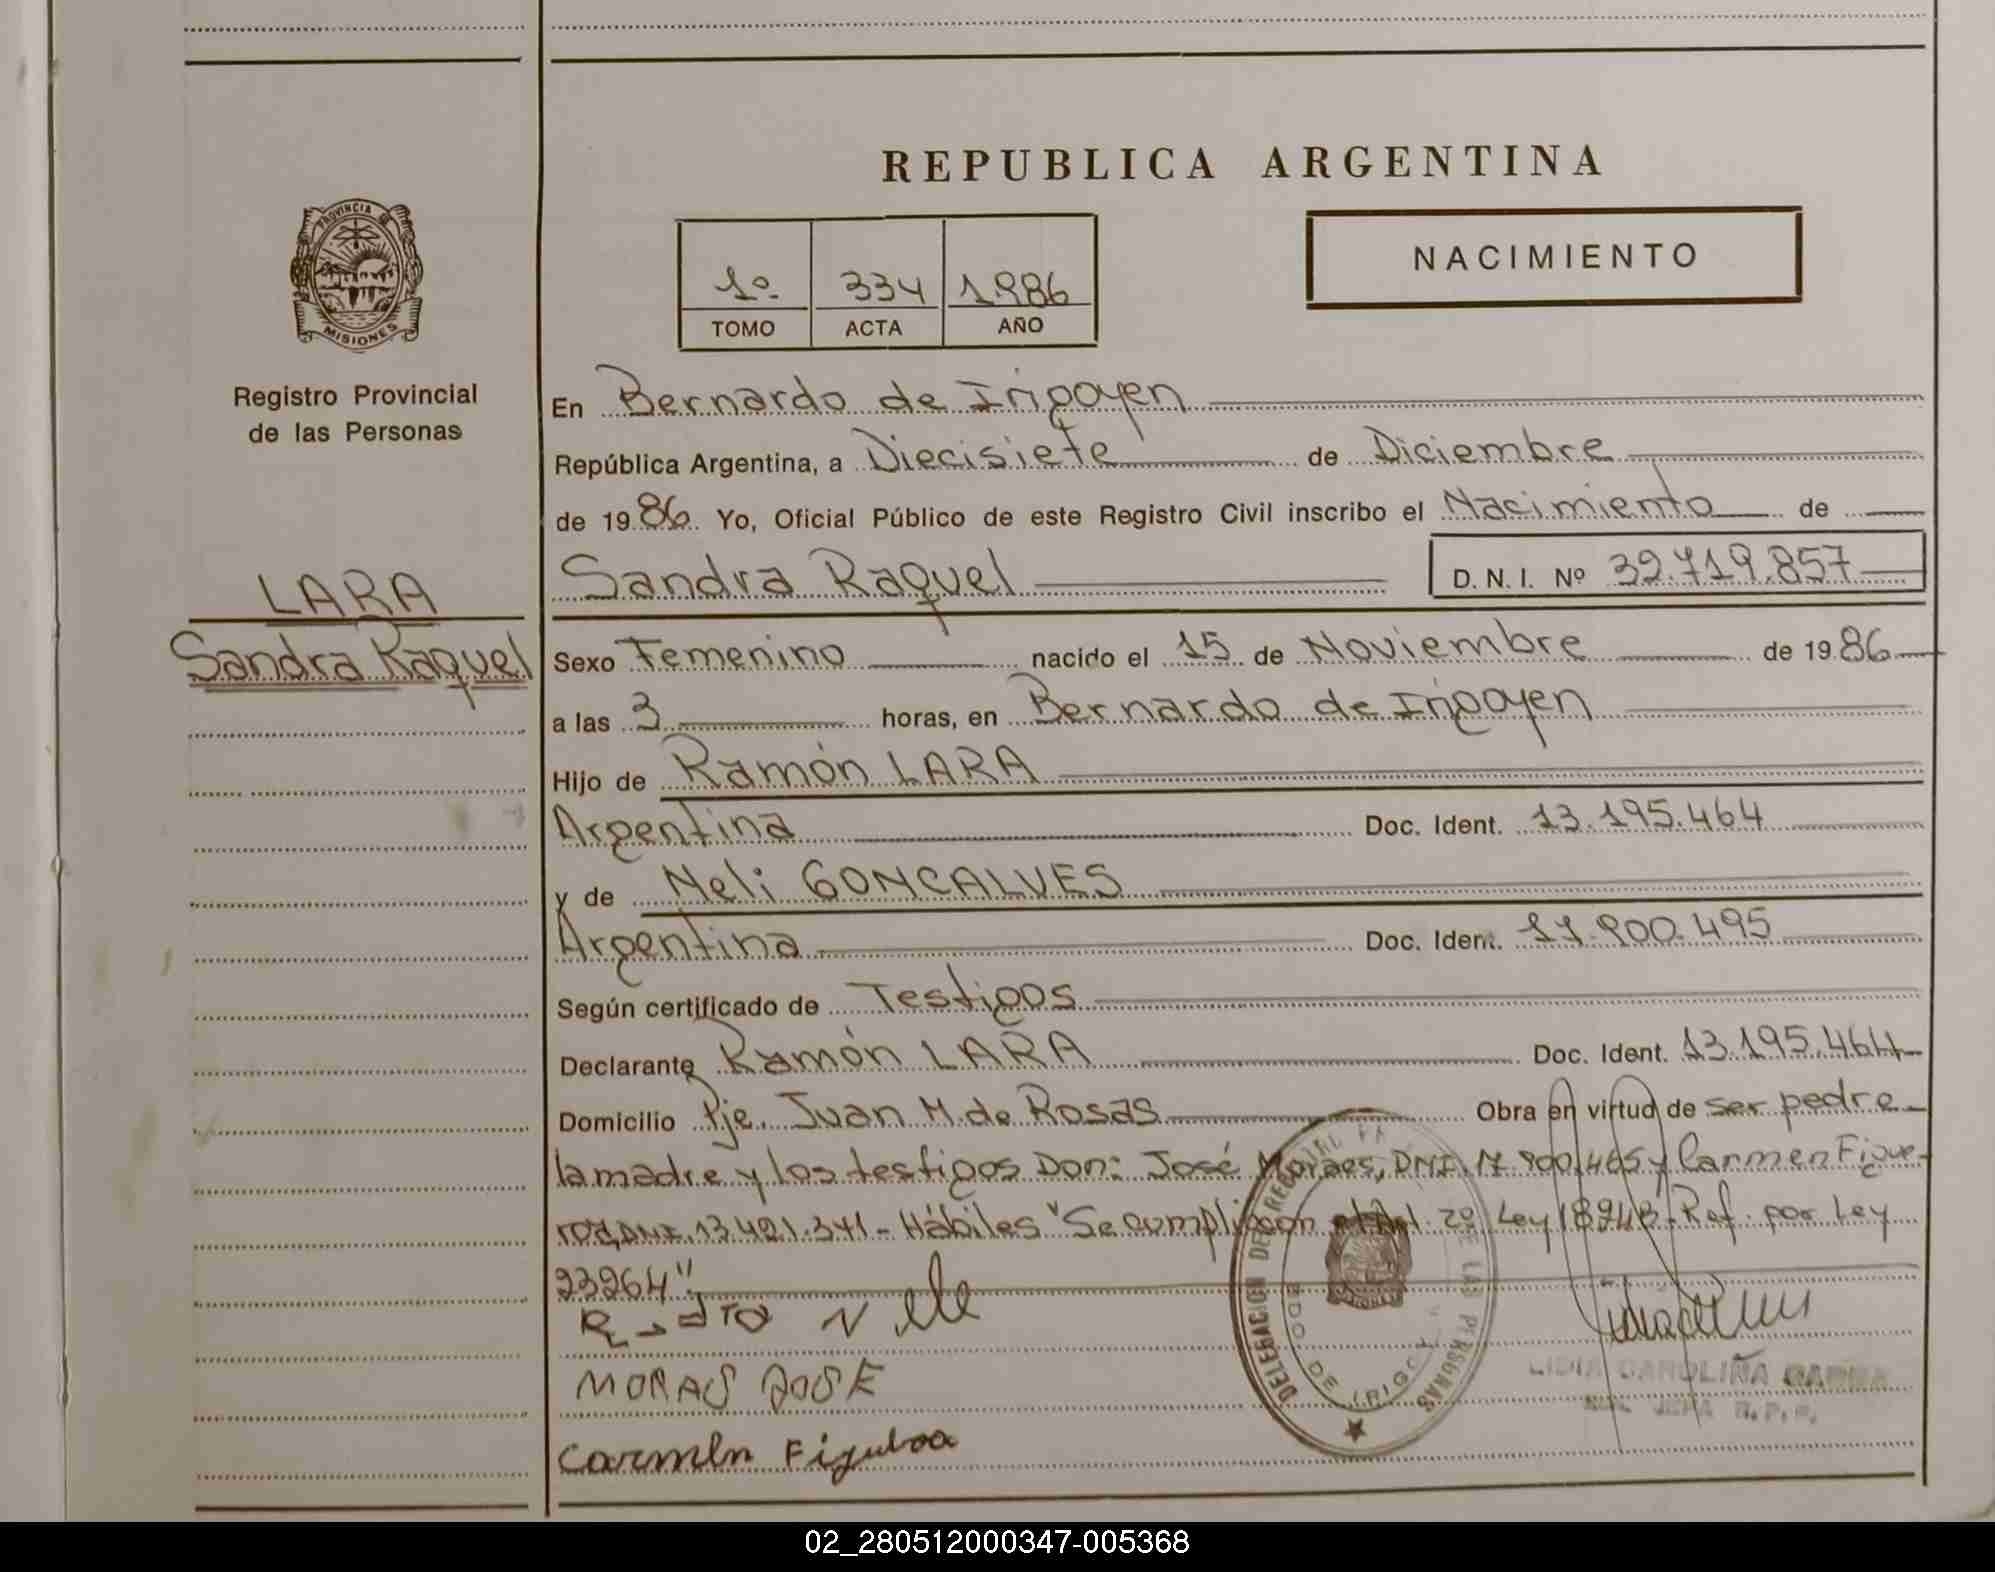 REPUBLICA ARGENTINA
PROVINCIA DE
MISIONES
1º 334 1986
TOMO ACTA AÑO
NACIMIENTO
Registro Provincial
de las Personas
LARA
Sandra Raquel
En Bernardo de Irigoyen
República Argentina, a Diecisiete de Diciembre
de 1986 Yo, Oficial Público de este Registro Civil inscribo el Nacimiento de
Sandra Raquel D. N. I. Nº 32.719.857
Sexo Femenino nacido el 15 de Noviembre de 1986
a las 3 horas, en Bernardo de Irigoyen
Hijo de Ramón LARA
Argentina Doc. Ident. 13.195.464
y de Neli GONCALVES
Argentina Doc. Ident. 11.900.495
Según certificado de Testigos
Declarante Ramón LARA Doc. Ident. 13.195.464
Domicilio Pje. Juan M. de Rosas Obra en virtud de ser pedre
la madre y los testigos Don: José Moraes, DNI. 17.900.465 y Carmen Figue-
roa, DNI. 13.421.341 - Hábiles "Se cumplieron el Art. 2º Ley 18248. Ref. por Ley
23264"
MORAS JOSE
Carmen Figueroa
DELEGACION DEL REGISTRO DE LAS PERSONAS
BDO. DE IRIGOYEN
LIDIA CAROLINA
JEFA R. P. P.
02_280512000347-005368